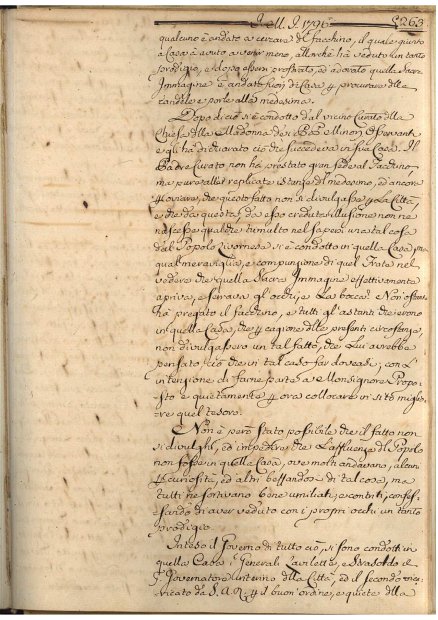 J. M. J. 1796
263
qualcuno è andato a cercare del Facchino, il quale giunto
a Casa è avuto a venir meno, allorchè hà veduto un tanto
prodigio, e dopo essersi prostrato, ed adorato quella Sacra
Immagine è andato fuori di Casa p procurare delle
candele e porle alla medesima.
Dopo di ciò si è condotto dal vicino Curato dlla
Chiesa dlla Madonna de i Minori Osservanti
e gli hà dichiarato ciò che succedeva in sua Casa. Il
Padre Curato non hà prestato gran fede al Facchino,
ma pure alle replicate istanze dl medesimo, ed ancora
p ovviare, che questo fatto non si divulgasse p La Città,
e che da questa da esso creduta illusione non ne
nascesse qualche tumulto nel sapersi una tal cosa
dal Popolo Livornese si è condotto in quella Casa, ma
qual meraviglia, e compunzione di quel Frate nel
vedere che quella Sacra Immagine effettivamente
apriva, e serrava gli occhi, e La bocca. Non ostante
hà pregato il facchino, e tutti gl'astanti che erono
in quella Casa, che p cagione delle presenti circostanze
non divulgassero un tal fatto, che Lui avrebbe
pensato ciò che in tal caso far doveasi, con
intenzione di farne parte a Monsignore Propo-
sto e quietamente p ora collocare in sito miglio-
re quel tesoro.
Non è però stato possibile che il fatto non
si divulghi, ed impedire che L'affluenza dl Popolo
non fosse in quella Casa, ove molti andavano, alcuni
p curiosità, ed altri beffandosi di tal cosa, ma
tutti ne sortivano bene umiliati, e contriti, confes-
sando di aver veduto con i propri occhi un tanto
prodigio.
Inteso il Governo di tutto ciò, si sono condotti in
quella Casa i Generali Lavilette, e Strasoldo il
p Governatore interino dlla Città, ed il secondo inca-
ricato da S. A. R. p il buon ordine, e quiete dlla